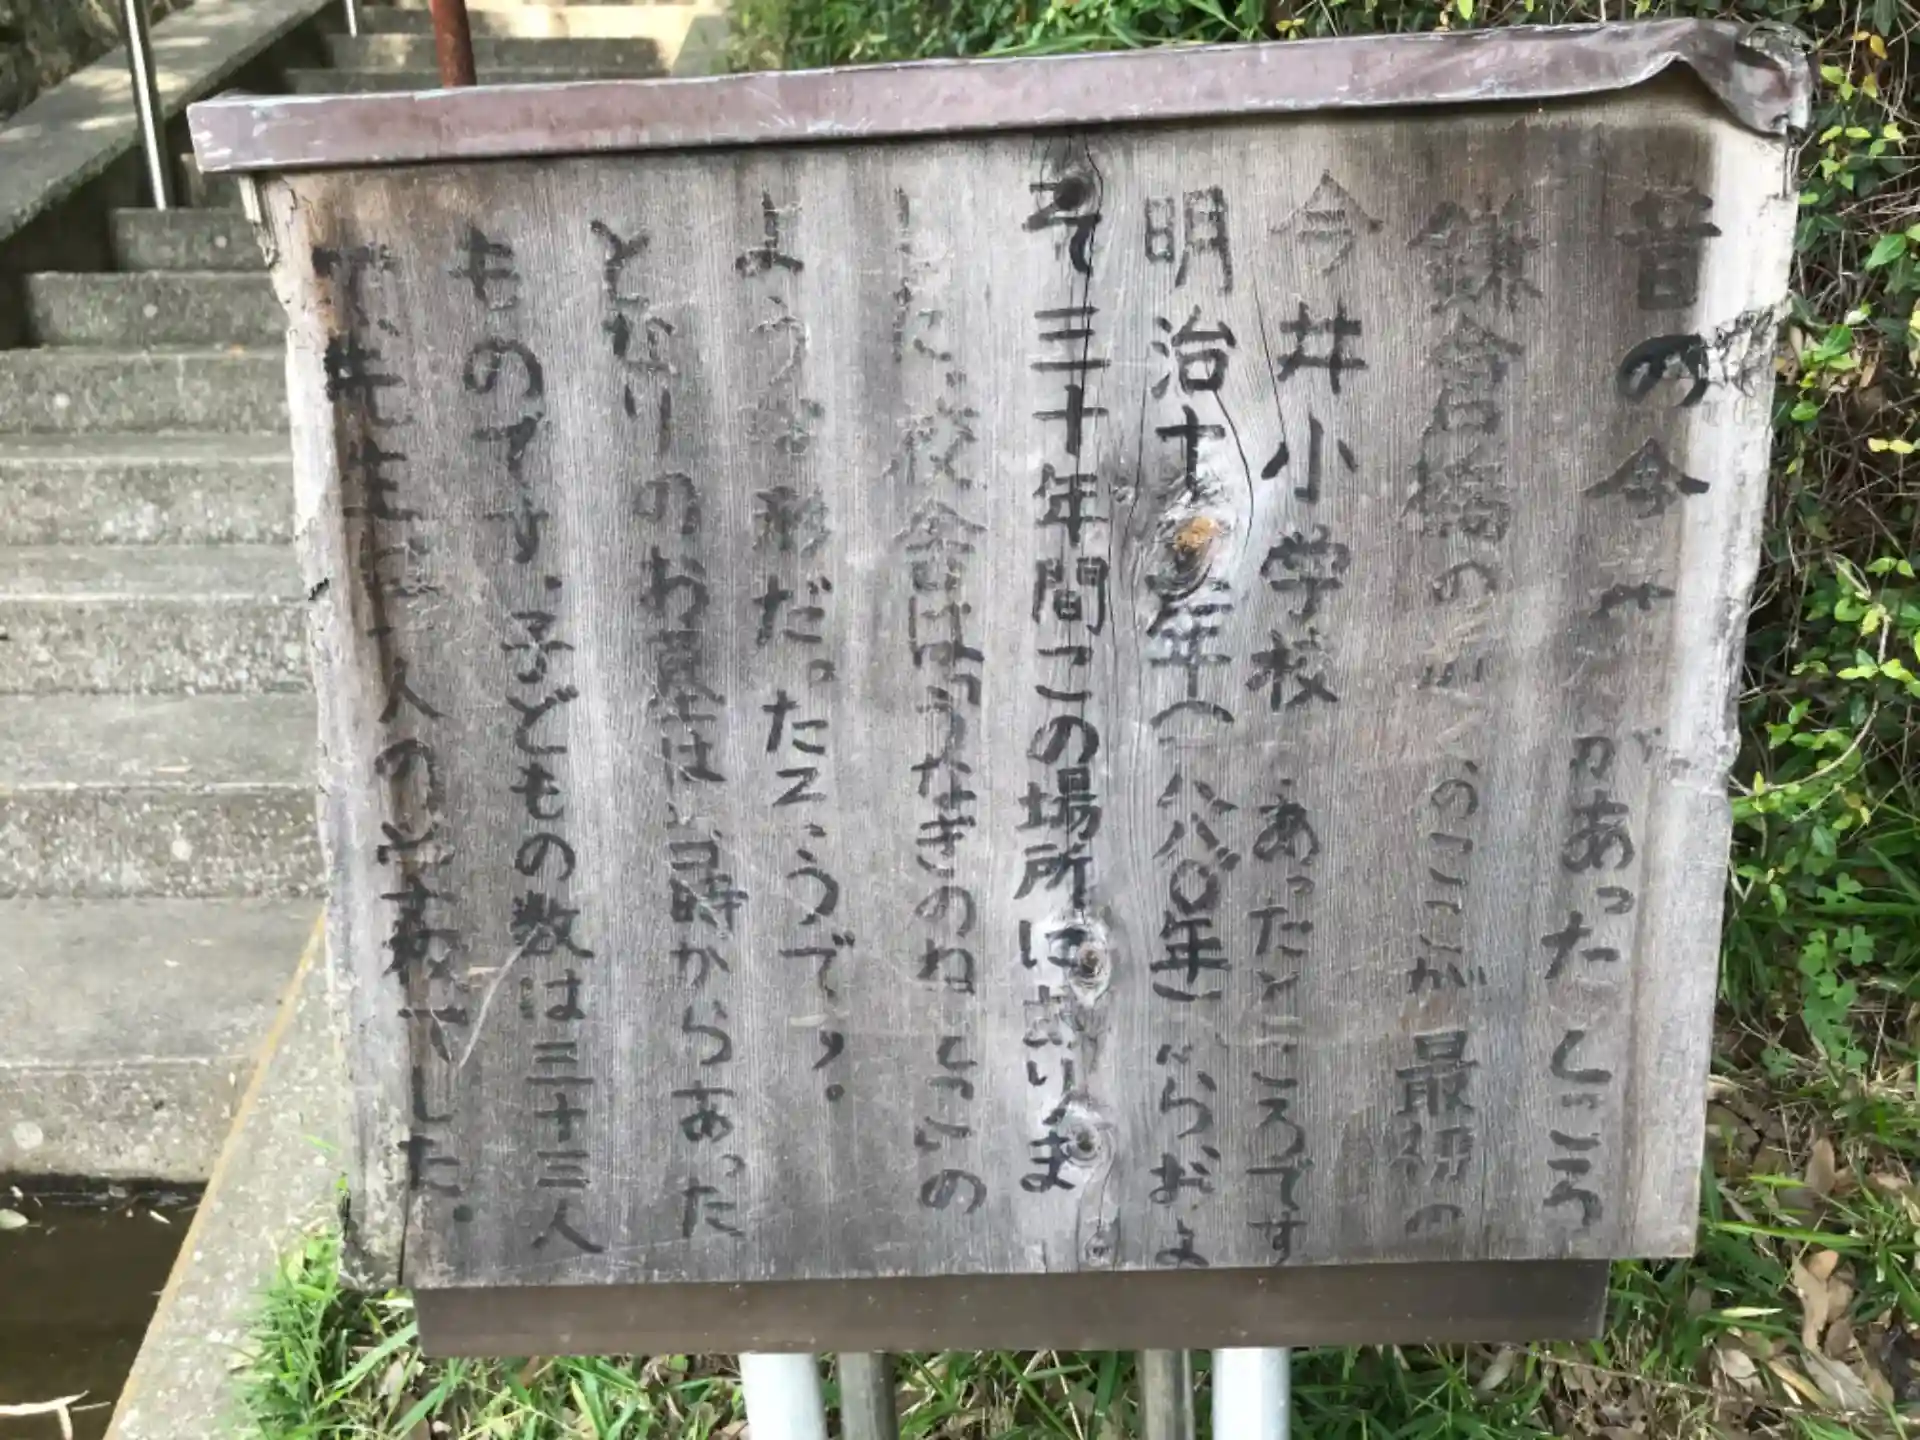 昔の今 があったところ
鎌倉橋の のここが最初の
今井小学校 あったところです
明治十 年(一八八〇年)からおよ
そ三十年間この場所にありま
した。校舎はうなぎのねどこの
ような形だったそうです。
となりのお墓は当時からあった
ものです。子どもの数は三十三人
で先生は一人の でした。